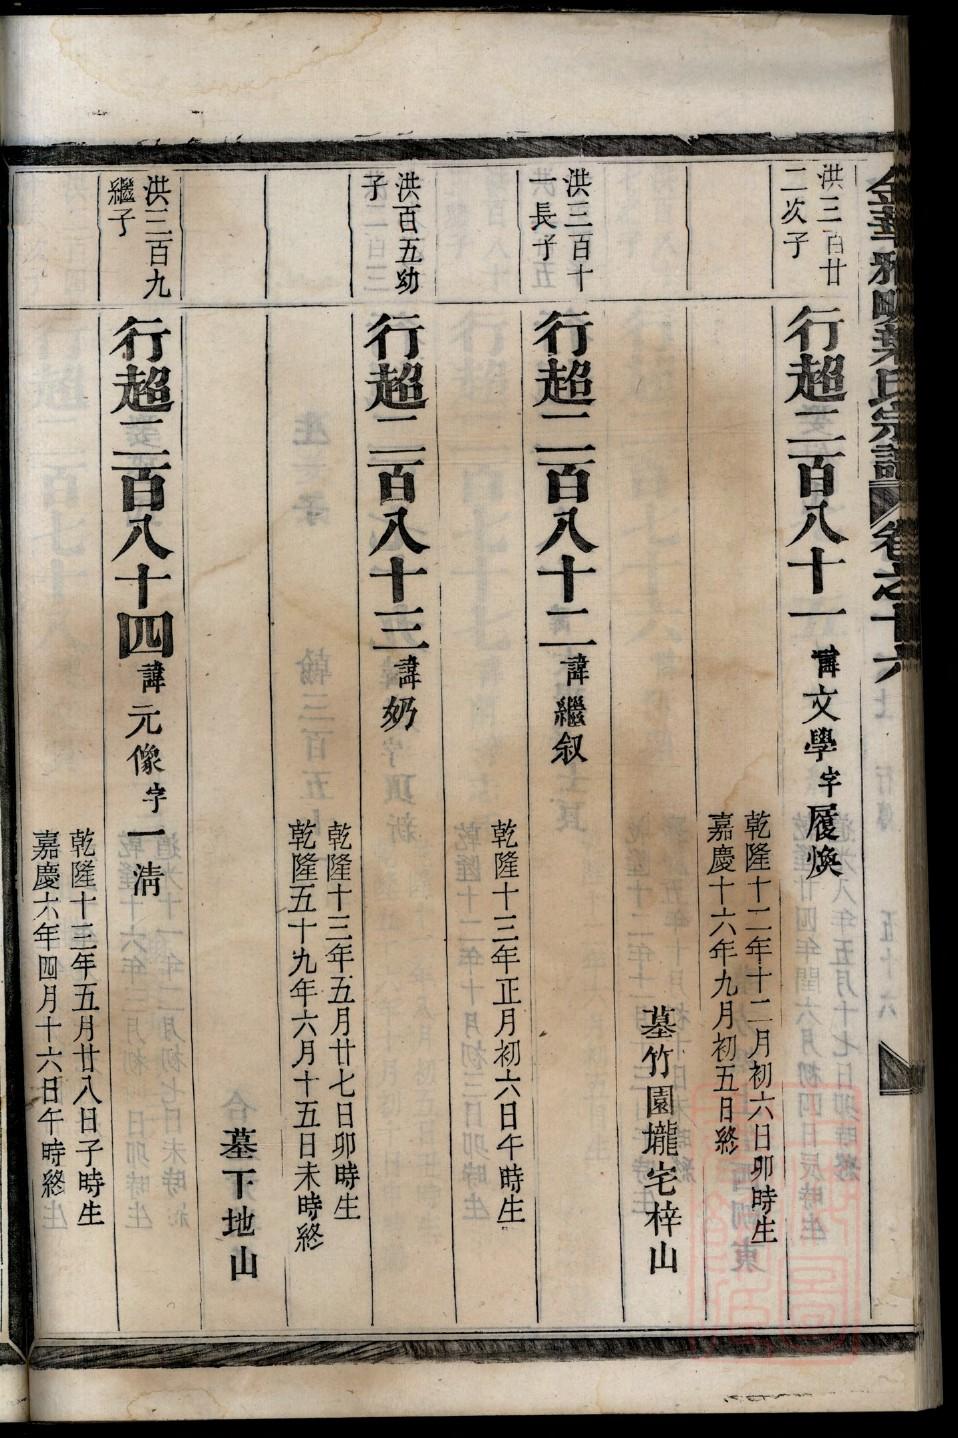 金華雅畈葉氏宗譜 卷之十六
洪三百廿
二次子
行超二百八十一 諱文學字履煥
乾隆十二年十二月初六日卯時生
嘉慶十六年九月初五日終
墓竹園壠宅梓山
洪三百十
一長子
行超二百八十二 諱繼叙
乾隆十三年正月初六日午時生
洪百五幼
子
行超二百八十三 諱奶
乾隆十三年五月廿七日卯時生
乾隆五十九年六月十五日未時終
墓下地山
洪三百九
繼子
行超二百八十四 諱元像字一清
乾隆十三年五月廿八日子時生
嘉慶六年四月十六日午時終